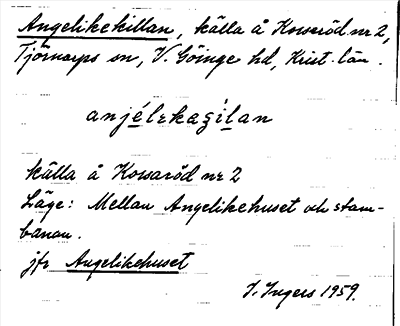 Angelikekillan, källa å Korsaröd nr 2,
Tjörnarps sn, V. Göinge hd, Krist. län.
anjélikaʒilan
källa å Korsaröd nr 2
Läge: Mellan Angelikehuset och stam-
banan.
jfr Angelikehuset
I. Ingers 1959.